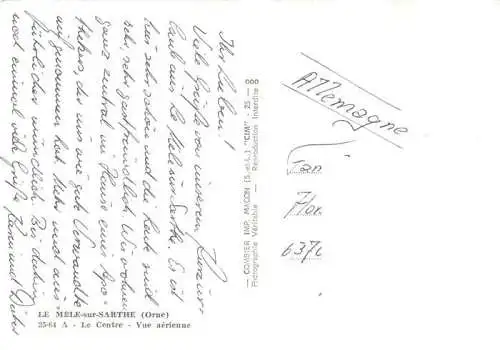 Ihr Lieben!
Viele Grüße von unserem Kurzur-
laub aus Le Mele sur Sarthe. Es ist
hier sehr schön und die Leute sind
sehr, sehr gastfreundlich. Wir wohnen
ganz zentral im Hause eines Apo-
thekers, der uns wie gute Verwandte
aufgenommen hat. Mehr und aus-
führlicher mündlich. Bis dahin
noch einmal viele Grüße Karin und Dieter
LE MÊLE-sur-SARTHE (Orne)
25-64 A - Le Centre - Vue aérienne
— COMBIER IMP. MACON (S.-et-L.) "CIM" - 25 — 000
Photographie Véritable — Reproduction Interdite
Allemagne
Fam
Flor
637